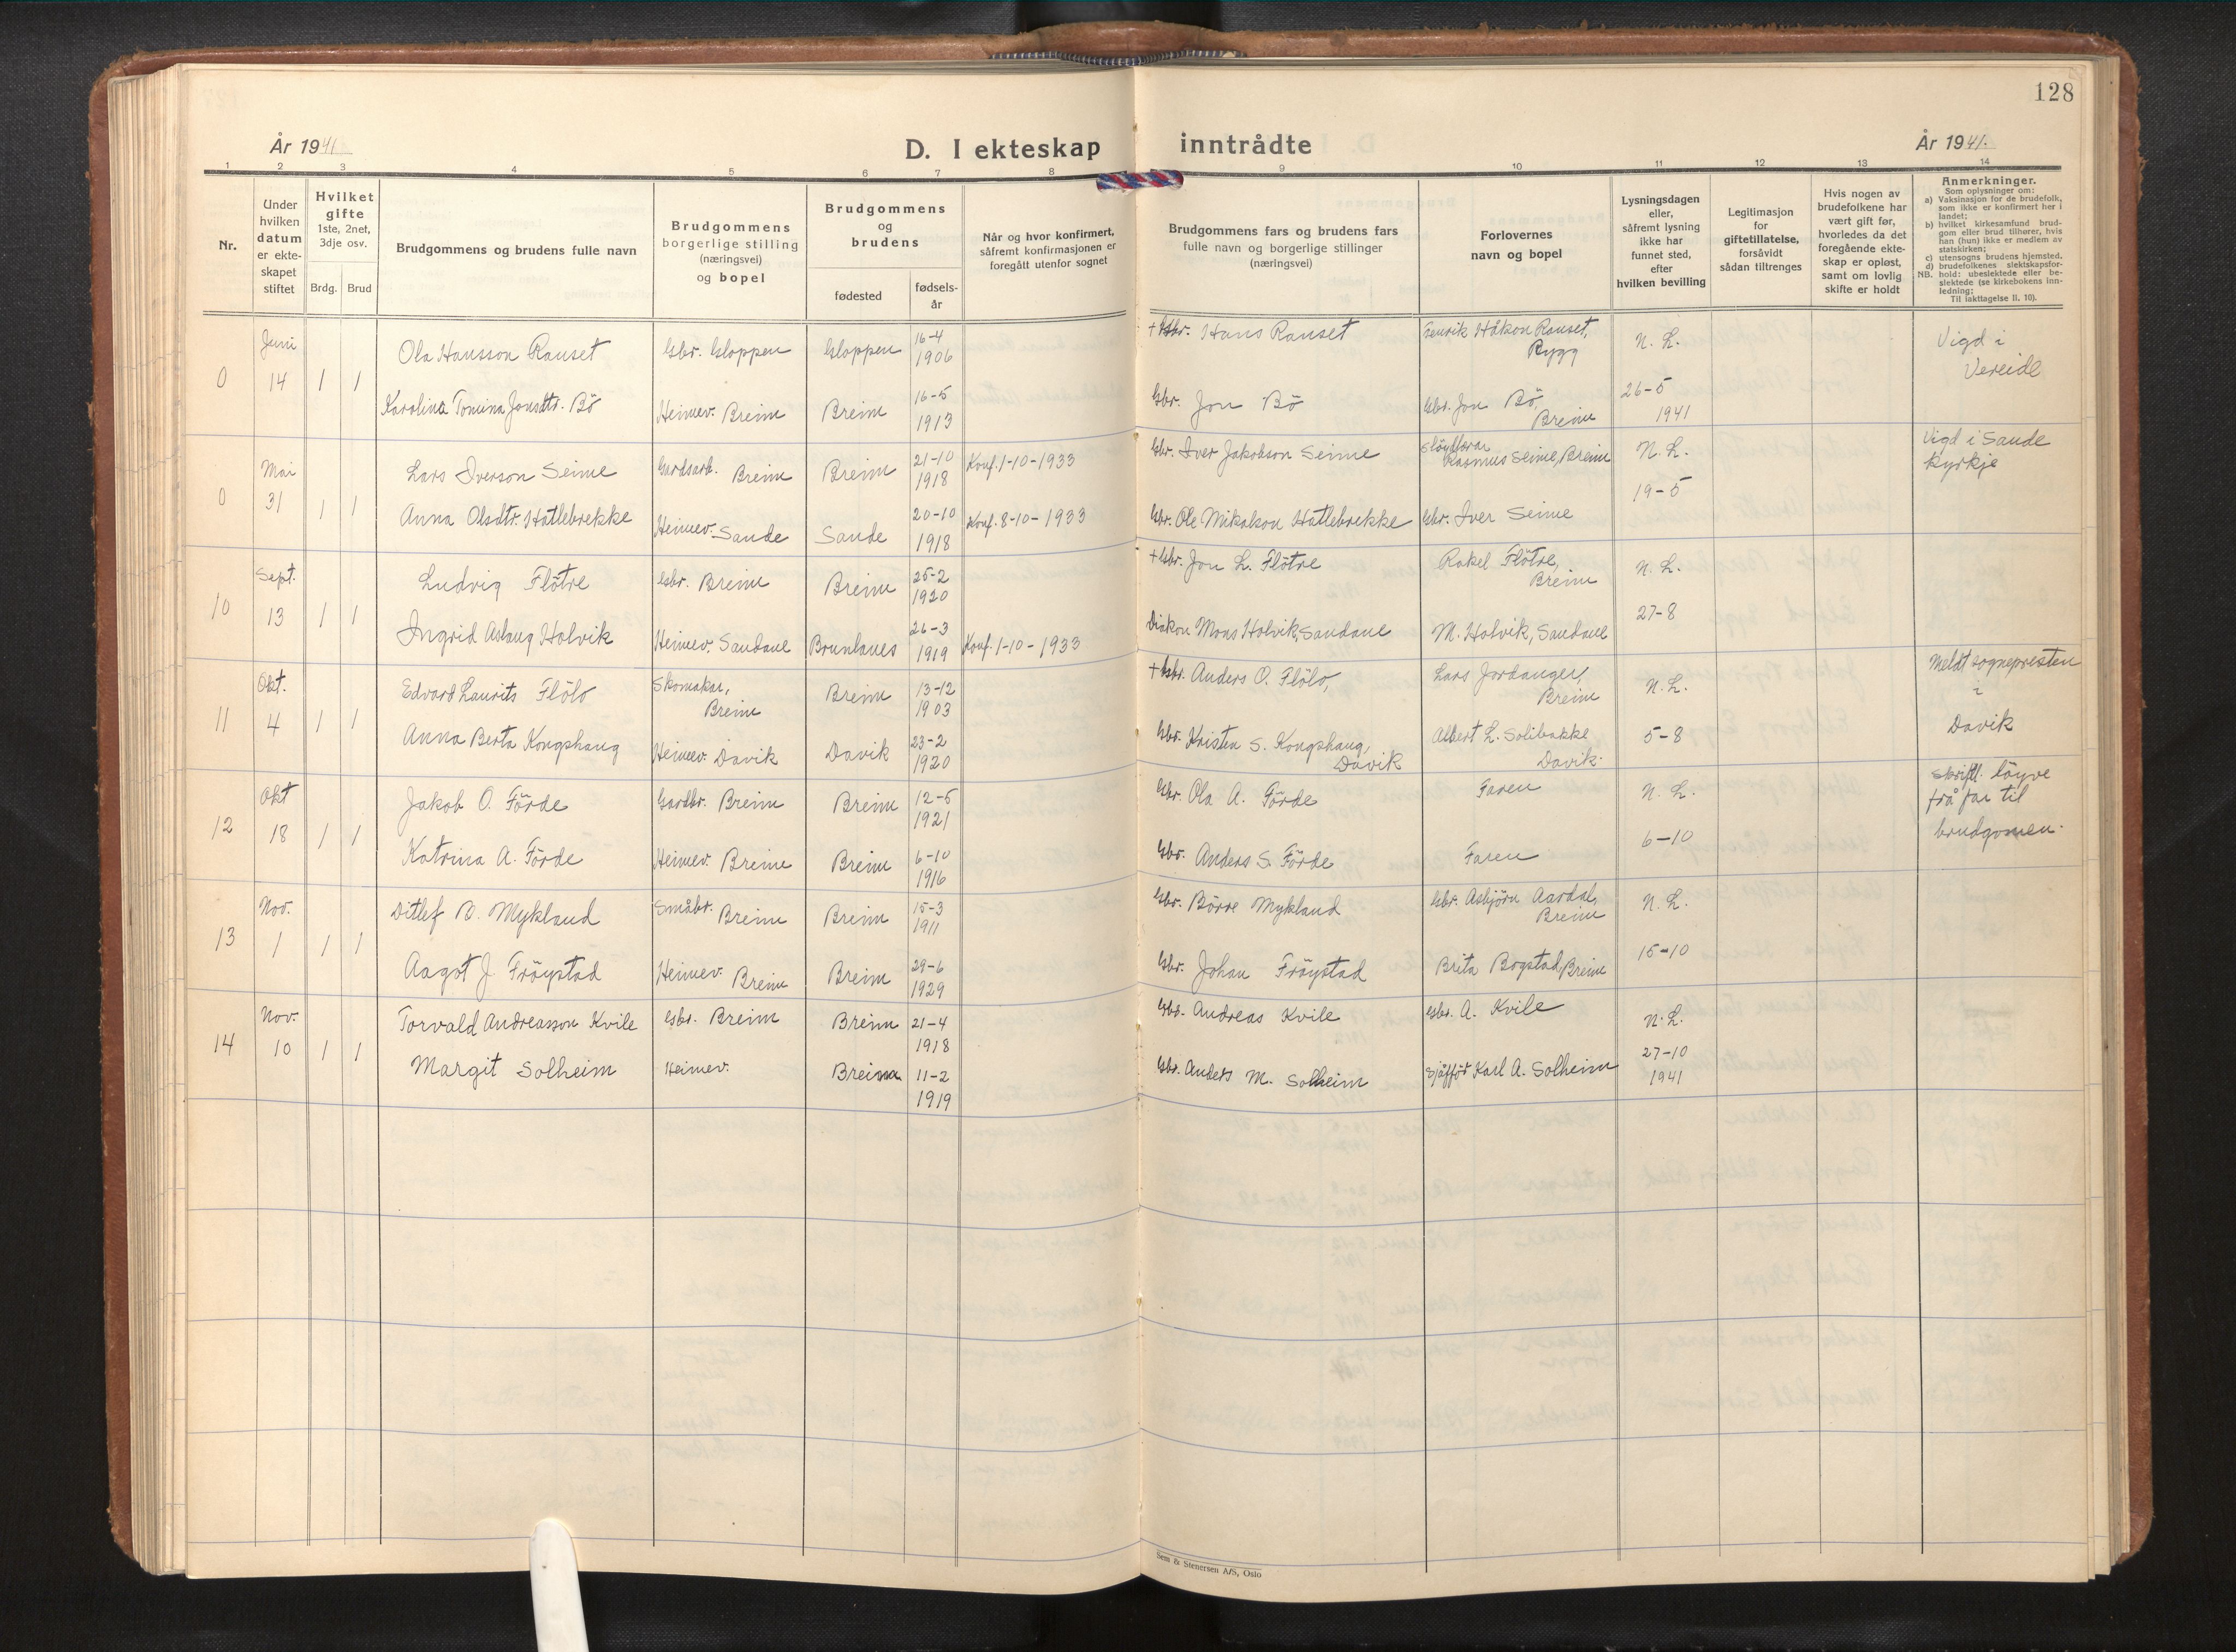 128
År 1941
D. I ekteskap inntrådte
År 1941.
1 2 3 4 5 6 7 8 9 10 11 12 13 14
Nr.
Under hvilken datum er ekte-skapet stiftet
Hvilket gifte 1ste, 2net, 3dje osv.
Brdg. Brud
Brudgommens og brudens fulle navn
Brudgommens borgerlige stilling (næringsvei) og bopel
Brudgommens og brudens
fødested
fødsels-år
Når og hvor konfirmert, såfremt konfirmasjonen er foregått utenfor sognet
Brudgommens fars og brudens fars fulle navn og borgerlige stillinger (næringsvei)
Forlovernes navn og bopel
Lysningsdagen eller, såfremt lysning ikke har funnet sted, efter hvilken bevilling
Legitimasjon for giftetillatelse, forsåvidt sådan tiltrenges
Hvis nogen av brudefolkene har vært gift før, hvorledes da det foregående ekte-skap er opløst, samt om lovlig skifte er holdt
Anmerkninger.
Som oplysninger om:
a) Vaksinasjon for de brudefolk, som ikke er konfirmert her i landet;
b) hvilket kirkesamfund brud-gom eller brud tilhører, hvis han (hun) ikke er medlem av statskirken;
c) utensogns brudens hjemsted.
d) brudefolkenes slektskapsfor-hold: ubeslektede eller be-slektede (se kirkebokens inn-ledning;
NB. Til iakttagelse II. 10).
0 Juni 14 1 1
Ola Hansson Ranset Gbr. Gloppen Gloppen 16-4 1906 + Gbr. Hans Ranset Henrik Håkon Ranset, Rygg N. L. Vigd i Vereide
Karolina Tomina Jonsdtr. Bö Heimev. Breim Breim 16-5 1913 Gbr. Jon Bö Gbr. Jon Bö, Breim 26-5 1941
0 Mai 31 1 1
Lars Iverson Seime Gardsarb. Breim Breim 21-10 1918 Konf. 1-10-1933 Gbr. Iver Jakobson Seime Slöydlærar Rasmus Seime, Breim N. L. Vigd i Sande kyrkje
Anna Olsdtr. Hatlebrekke Heimev. Sande Sande 20-10 1918 Konf. 8-10-1933 Gbr. Ole Mikalson Hatlebrekke Gbr. Iver Seime 19-5
10 Sept. 13 1 1
Ludvig Flötre Gbr. Breim Breim 25-2 1920 + Gbr. Jon L. Flötre Rakel Flötre, Breim N. L.
Ingrid Aslaug Holvik Heimev. Sandane Brunlanes 26-3 1919 Konf. 1-10-1933 Diakon Mons Holvik, Sandane M. Holvik, Sandane 27-8
11 Okt. 4 1 1
Edvard Laurits Flölo Skomakar, Breim Breim 13-12 1903 + Gbr. Anders O. Flölo, Lars Jordanger, Breim N. L. Meldt sognepresten i Davik
Anna Berta Kongshaug Heimev. Davik Davik 23-2 1920 Gbr. Kristen S. Kongshaug, Davik Albert L. Solibakke Davik. 5-8
12 Okt 18 1 1
Jakob O. Förde Gardbr. Breim Breim 12-5 1921 Gbr. Ola A. Förde Faren N. L. Skriftl. löyve frå far til brudgomen.
Katrina A. Förde Heimev. Breim Breim 6-10 1916 Gbr. Anders S. Förde Faren 6-10
13 Nov. 1 1 1
Ditlef B. Mykland Småbr. Breim Breim 15-3 1911 Gbr. Börre Mykland Gbr. Asbjörn Aardal, Breim N. L.
Aagot J. Fröystad Heimev. Breim Breim 29-6 1929 Gbr. Johan Fröystad Brita Bogstad, Breim 15-10
14 Nov. 10 1 1
Torvald Andreasson Kvile Gbr. Breim Breim 21-4 1918 Gbr. Andreas Kvile Gbr. A. Kvile N. L.
Margit Solheim Heimev. Breim 11-2 1919 Gbr. Anders M. Solheim Sjåfför Karl A. Solheim 27-10 1941
Sem & Stenersen A/S, Oslo